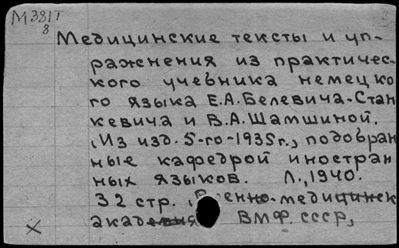 М381т
8
Медицинские тексты и уп-
ражнения из практичес-
кого учебника немецко
го языка Е.А.Белевича-Стан
кевича и В.А.Шамшиной.
(Из изд. 5-го-1935г., подобран
ные кафедрой иностран
ных языков. Л., 1940.
32 стр. (Военно-медицинск
академия ВМФ СССР,